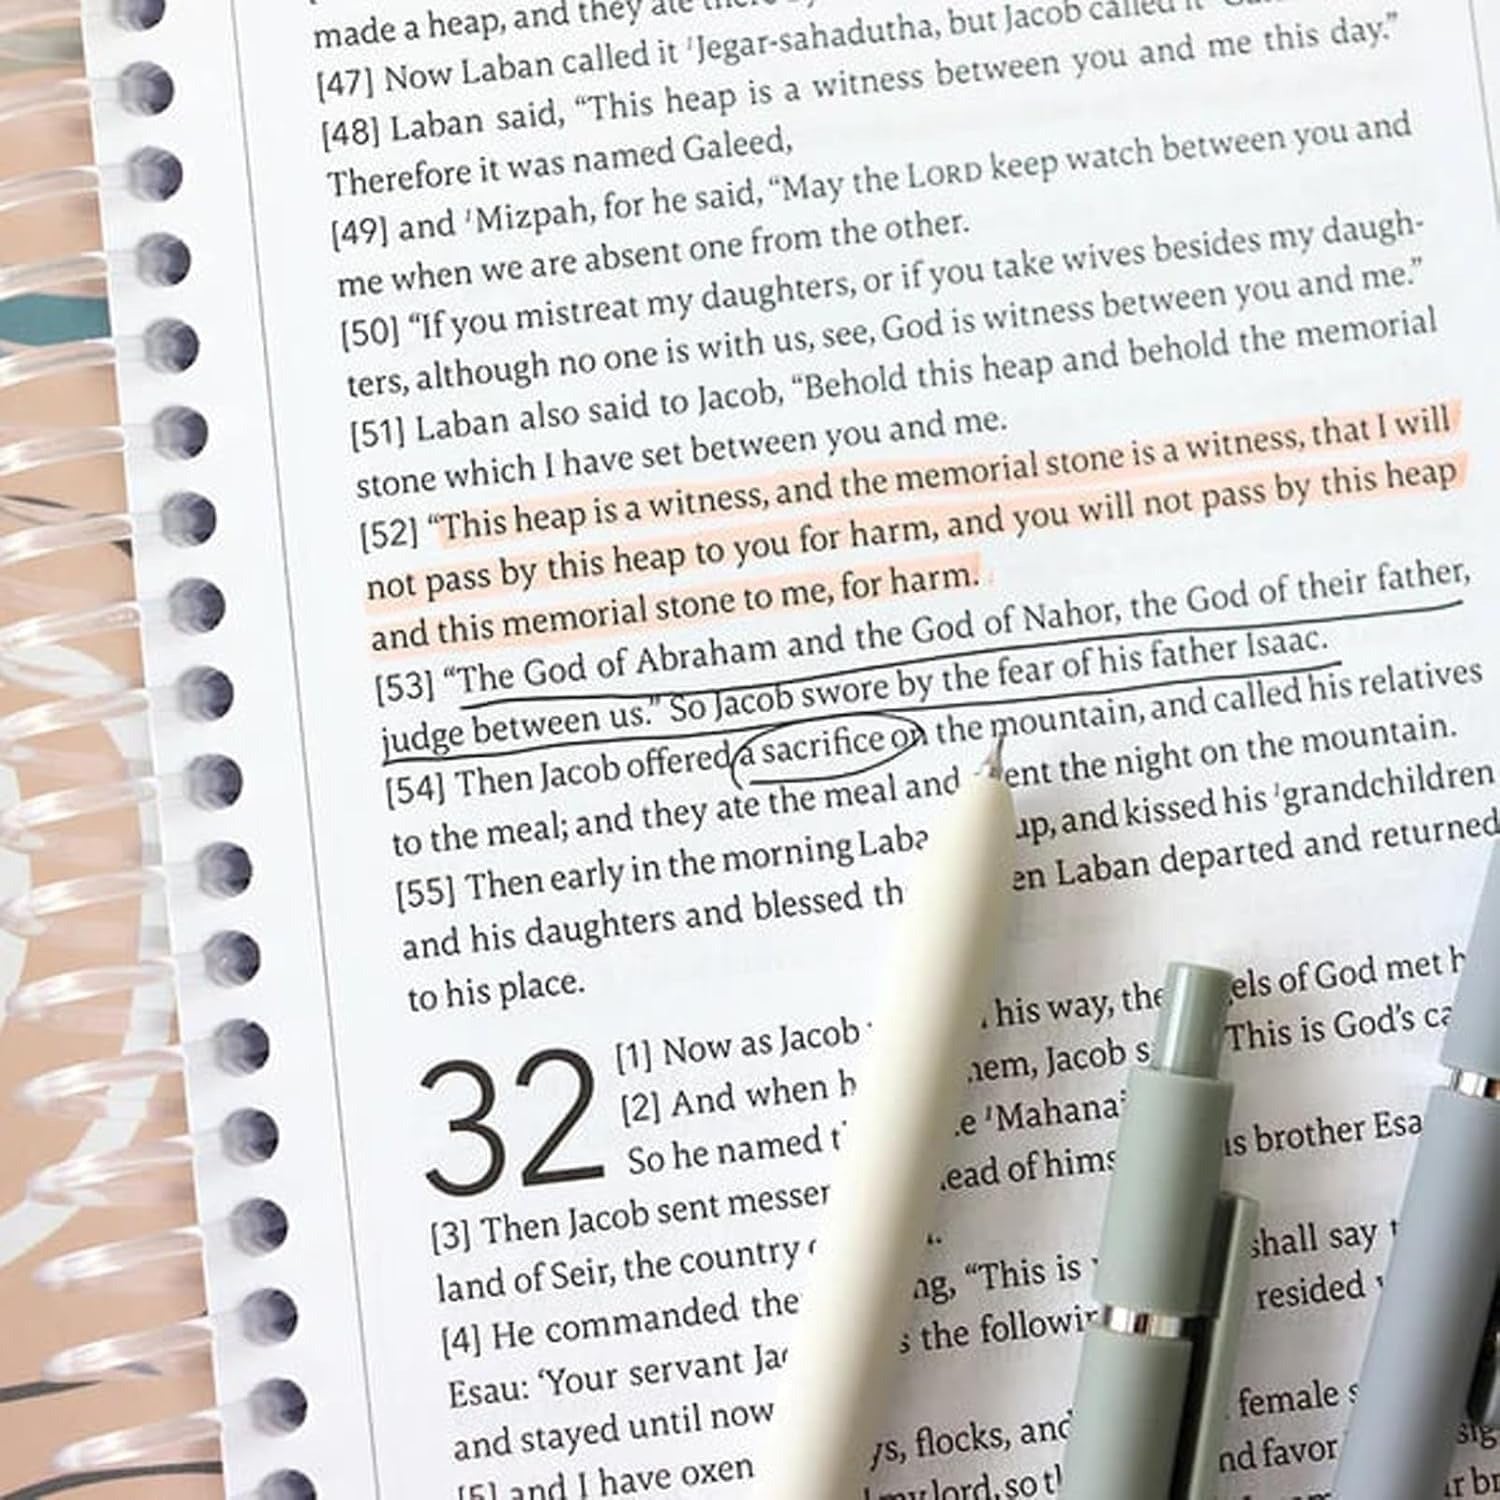 made a heap, and they ate
[47] Now Laban called it 'Jegar-sahadutha, but Jacob called it
[48] Laban said, “This heap is a witness between you and me this day.”
Therefore it was named Galeed,
[49] and 'Mizpah, for he said, “May the LORD keep watch between you and
me when we are absent one from the other.
[50] “If you mistreat my daughters, or if you take wives besides my daugh-
ters, although no one is with us, see, God is witness between you and me.”
[51] Laban also said to Jacob, “Behold this heap and behold the memorial
stone which I have set between you and me.
[52] “This heap is a witness, and the memorial stone is a witness, that I will
not pass by this heap to you for harm, and you will not pass by this heap
and this memorial stone to me, for harm.
[53] “The God of Abraham and the God of Nahor, the God of their father,
judge between us.” So Jacob swore by the fear of his father Isaac.
[54] Then Jacob offered a sacrifice on the mountain, and called his relatives
to the meal; and they ate the meal and ent the night on the mountain.
[55] Then early in the morning Laba up, and kissed his 'grandchildren
and his daughters and blessed th en Laban departed and returned
to his place.
32
[1] Now as Jacob his way, the els of God met
[2] And when h em, Jacob s This is God's
So he named e 'Mahana
[3] Then Jacob sent messen ead of hims is brother Esa
land of Seir, the country
[4] He commanded the ng, “This is shall say
Esau: ‘Your servant s the followin resided
and stayed until now
[5] and I have oxen ys, flocks, and female
my lord, so nd favor